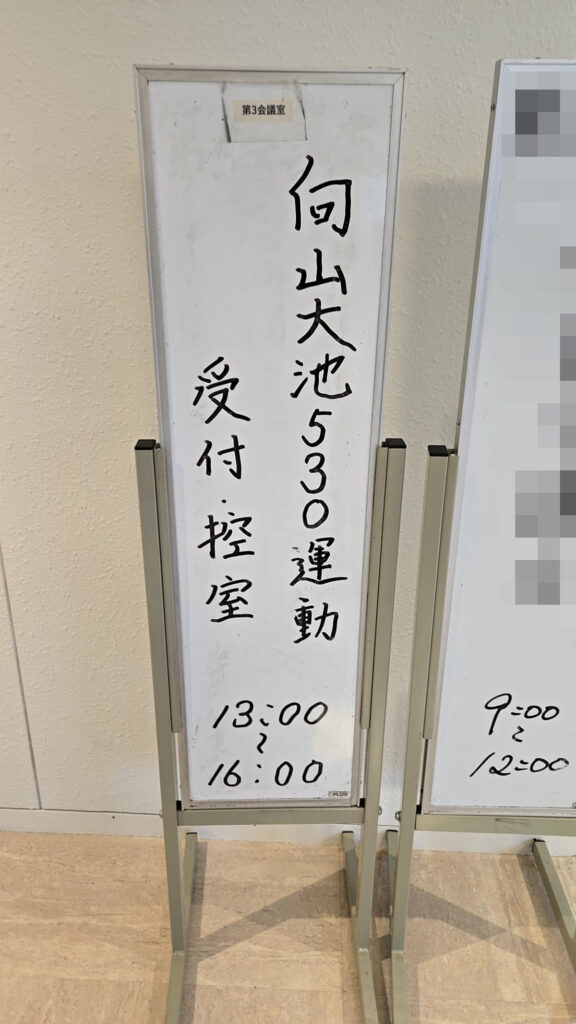 第3会議室
向山大池530運動
受付・控室
13:00
〜
16:00
PLUS
9:00
〜
12:00